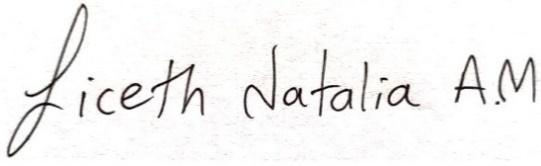 Liceth Natalia A.M